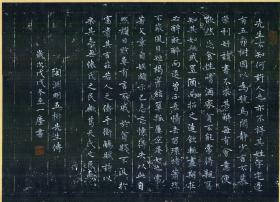 先生不知何許人也亦不詳其姓字宅邊
有五柳樹因以為號焉閑靜少言不慕
榮利好讀書不求甚解每有會意便
欣然忘食性嗜酒家貧不能常得親舊
知其如此或置酒而招之造飲輒盡期在
必醉既醉而退曾不吝情去留環堵蕭然
不蔽風日短褐穿結簞瓢屢空晏如也常著
文章自娛頗示己志忘懷得失以此自
終贊曰黔婁有言不戚戚於貧賤不汲汲
於富貴其言茲若人之儔乎銜觴賦詩以
樂其志無懷氏之民歟葛天氏之民歟
陶淵明五柳先生傳
歲次戊冬至一書